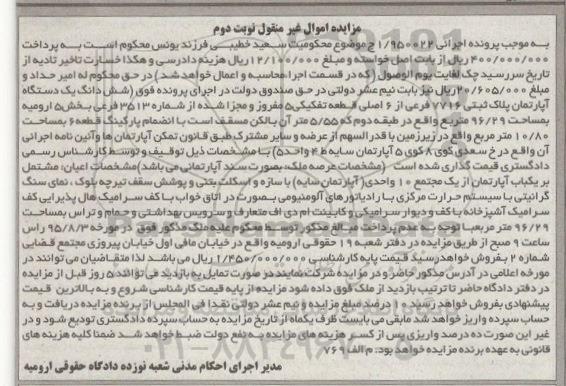 مزایده اموال غیر منقول نوبت دوم
به موجب پرونده اجرائی ۱/۹۵۰۰۲۲ ج موضوع محکومیت سعید خطیبی فرزند یونس محکوم است به پرداخت
۴۰۰/۰۰۰/۰۰۰ ریال از بابت اصل خواسته و مبلغ ۱۲/۱۰۰/۰۰۰ ریال هزینه دادرسی و هکذا خسارت تاخیر تادیه از
تاریخ سررسید چک لغایت یوم الوصول (که در قسمت اجرا محاسبه و اعمال خواهد شد) در حق محکوم له امیر حداد و
مبلغ ۲۰/۶۰۵/۰۰۰ ریال نیز بابت نیم عشر دولتی در حق صندوق دولت در اجرای پرونده فوق (شش دانگ یک دستگاه
آپارتمان پلاک ثبتی ۷۷۱۶ فرعی از ۶ اصلی قطعه تفکیکی ۵ مفروز و مجزا شده از شماره ۳۵۱۳ فرعی بخش ۵ ارومیه
بمساحت ۹۶/۲۹ متر مربع واقع در طبقه دوم که ۵/۵۵ متر آن بالکن مسقف است با انضمام پارکینگ قطعه ۶ بمساحت
۱۰/۸۰ متر مربع واقع در زیرزمین با قدر السهم از عرصه و سایر مشترک طبق قانون تمکن آپارتمان ها و آئین نامه اجرائی
آن واقع در خ سعدی کوی ۸ کوی ۵ آپارتمان سایه ط ۴ واحد ۵) با مشخصات ذیل توقیف و توسط کارشناس رسمی
دادگستری قیمت گذاری شده است (مشخصات عرصه ملک، بصورت سند آپارتمانی می باشد) مشخصات اعیان: مشتمل
بر یکباب آپارتمان از یک مجتمع ۱۰ واحدی( آپارتمان سایه) با سازه و اسکلت بتنی و پوشش سقف تیرچه بلوک، نمای سنگ
گرانیتی با سیستم حرارت مرکزی با رادیاتورهای آلومینیومی بصورت در اتاق خواب با کف سرامیک هال پذیرایی کف
سرامیک آشپزخانه با کف و دیوار سرامیکی و کابینت ام دی اف متعارف و سرویس بهداشتی و حمام و تراس بمساحت
۹۶/۲۹ متر مربع با توجه به عدم پرداخت مبالغ مذکور توسط محکوم علیه ملک مذکور فوق در مورخه ۹۵/۸/۳ راس
ساعت ۹ صبح از طریق مزایده در دفتر شعبه ۱۹ حقوقی ارومیه واقع در خیابان مافی اول خیابان پیروزی مجتمع قضایی
شماره ۲ بفروش خواهد رسید قیمت پایه کارشناسی ۱/۴۵۰/۰۰۰/۰۰۰ ریال می باشد لذا متقاضیان می توانند در
مورخه اعلامی در آدرس مذکور حاضر و در مزایده شرکت نمایند در صورت تمایل به بازدید می توانند ۵ روز قبل از مزایده
در دفتر دادگاه حاضر تا ترتیب بازدید از ملک فوق داده شود مزایده از پایه قیمت کارشناسی شروع و به بالاترین قیمت
پیشنهادی بفروش خواهد رسید ۱۰ درصد مبلغ مزایده و نیم عشر دولتی نقدا فی المجلس از برنده مزایده دریافت و به
حساب سپرده واریز خواهد شد مابقی می بایست ظرف یکماه از تاریخ مزایده به حساب سپرده دادگستری تودیع شود و در
غیر این صورت ده درصد واریزی پس از کسر هزینه های مزایده به نفع دولت ضبط خواهد شد ضمنا کلیه هزینه های
قانونی به عهده برنده مزایده خواهد بود. م الف ۷۶۹
مدیر اجرای احکام مدنی شعبه نوزده دادگاه حقوقی ارومیه